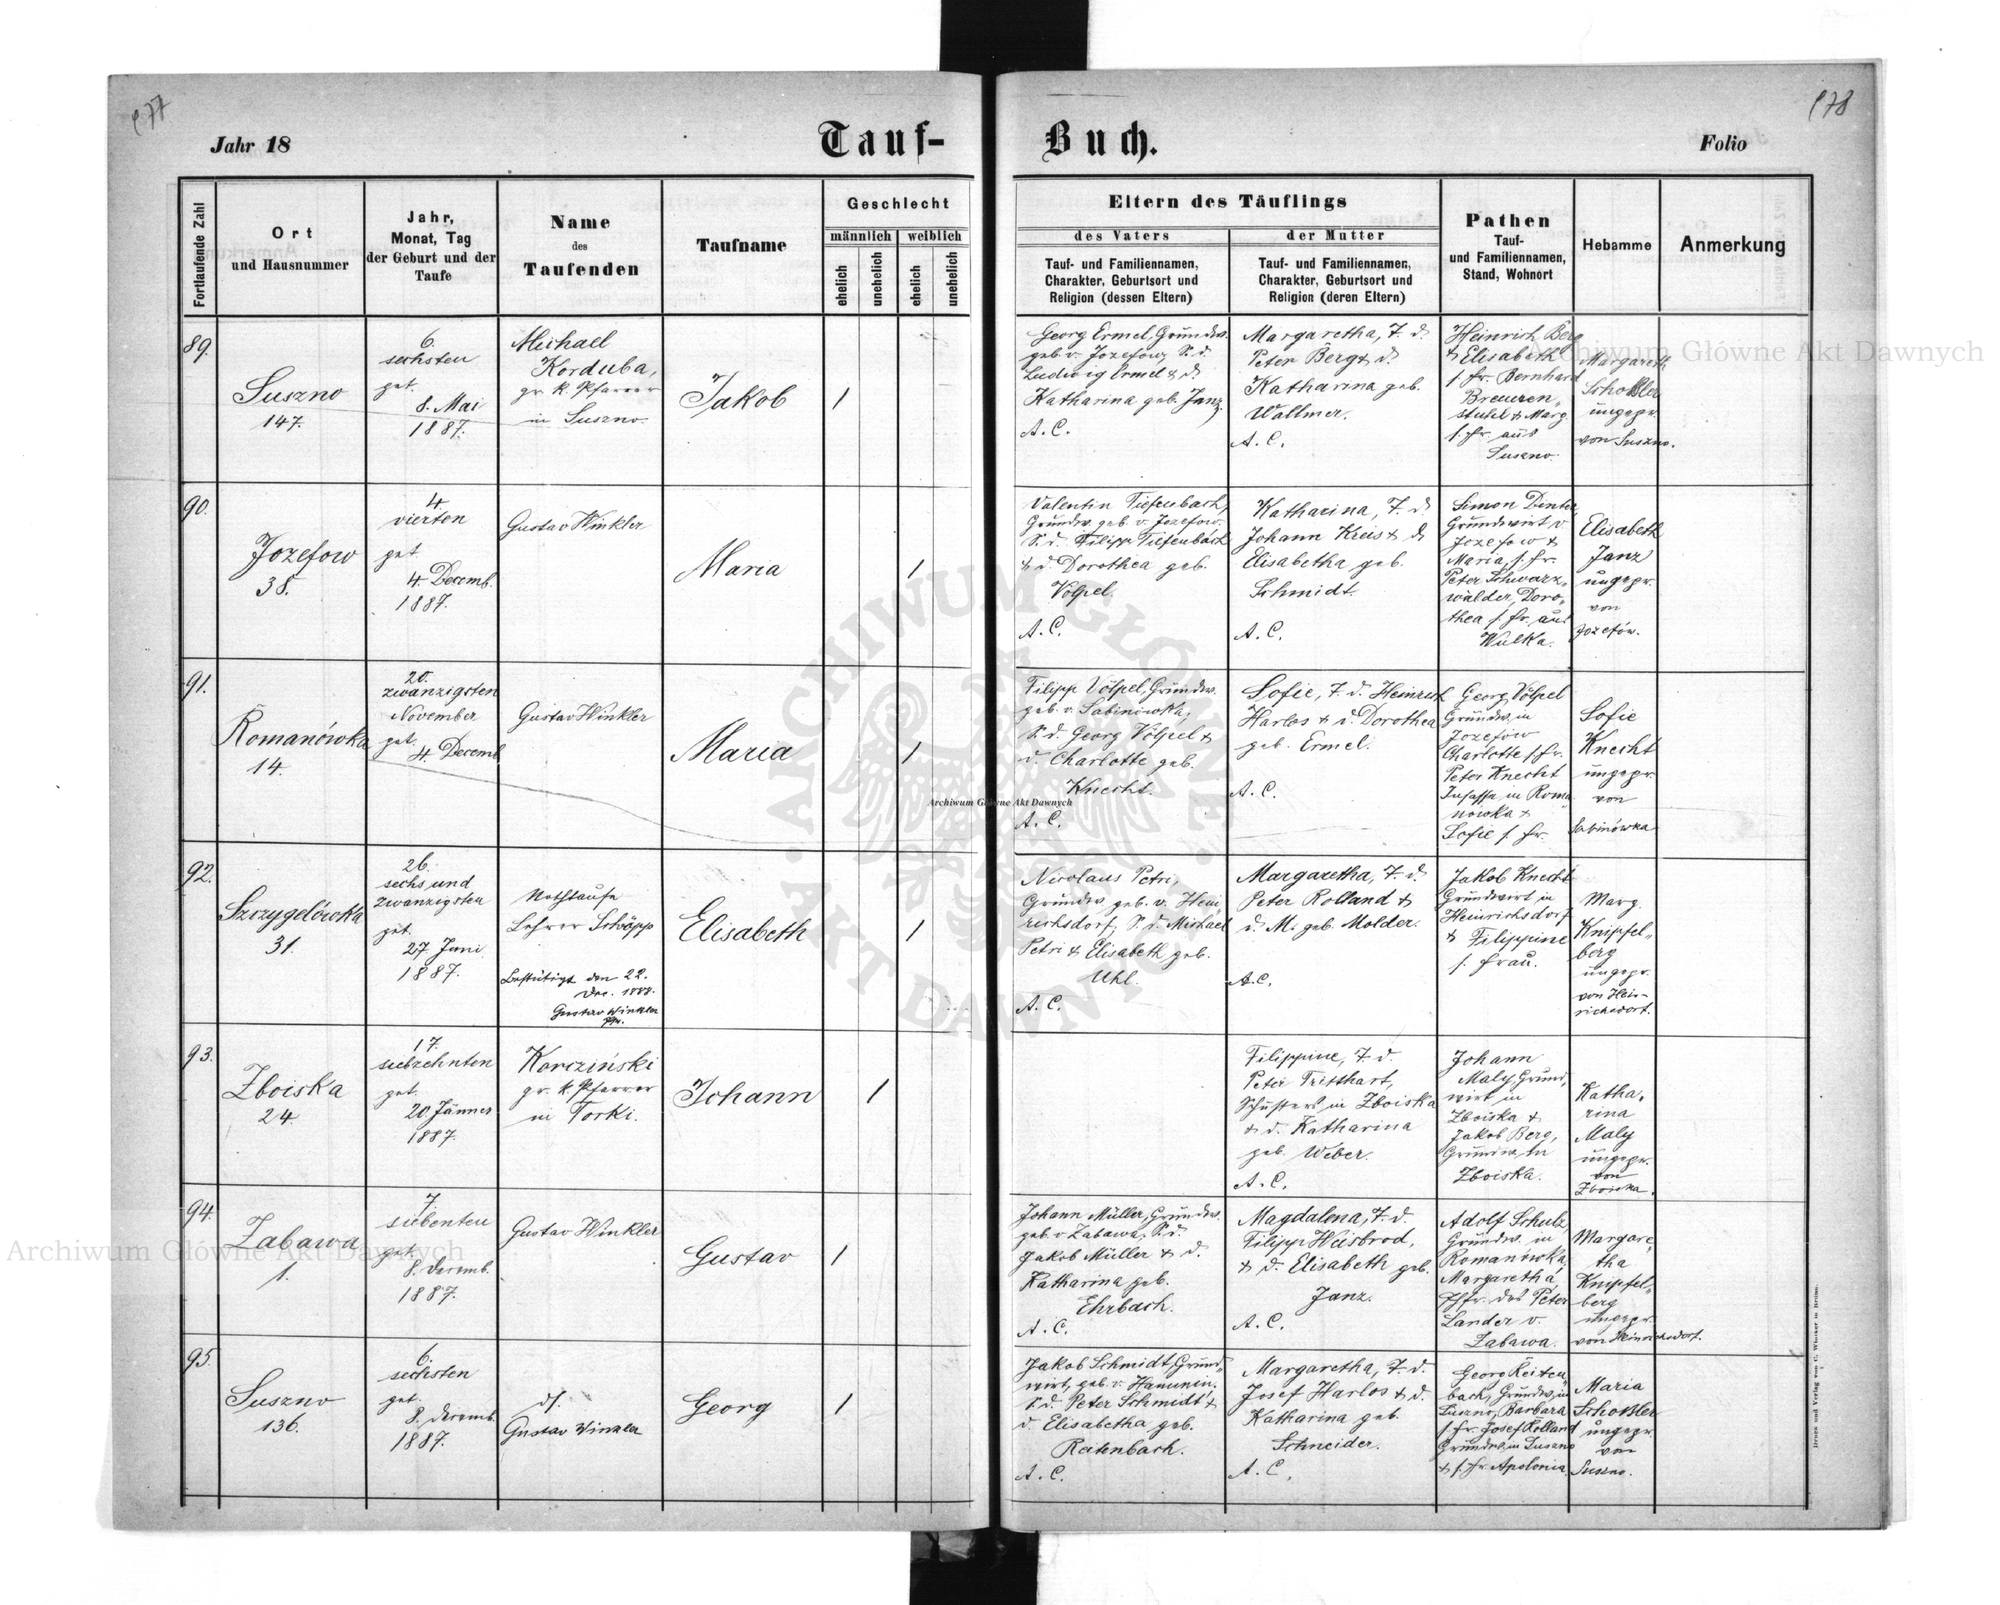 177
178
Jahr 18
Tauf-
Buch.
Folio
Fortlaufende Zahl
Ort
und Hausnummer
Jahr,
Monat, Tag
der Geburt und der
Taufe
Name
des
Taufenden
Taufname
Geschlecht
männlich
weiblich
ehelich
unehelich
ehelich
unehelich
Eltern des Täuflings
des Vaters
Tauf- und Familiennamen,
Charakter, Geburtsort und
Religion (dessen Eltern)
der Mutter
Tauf- und Familiennamen,
Charakter, Geburtsort und
Religion (deren Eltern)
Pathen
Tauf-
und Familiennamen,
Stand, Wohnort
Hebamme
Anmerkung
89.
Suszno
147.
6.
sechsten
get.
8. Mai
1887.
Michael
Korduba,
gr. k. Pfarrer
in Suszno
Jakob
1
Georg Ermel, Grundw.
geb. v. Jozefow, S. d.
Ludwig Ermel & d.
Katharina geb. Janz.
A. C.
Margaretha, T. d.
Peter Berg & d.
Katharina geb.
Wallmer.
A. C.
Heinrich Berg
& Elisabeth
s. fr. Bernhard
Breuren„
stuhl & Marg.
s. fr. aus
Suszno.
Margareth
Schoßler
ungepr.
von Suszno.
90.
Jozefow
38.
4.
vierten
get
4. Decemb.
1887.
Gustav Winkler
Maria
1
Valentin Tiefenbach,
Grundw. geb. v. Jozefow.
S. d. Filipp Tiefenbach
& d. Dorothea geb.
Völpel.
A. C.
Katharina, T. d.
Johann Kreis & d.
Elisabetha geb.
Schmidt.
A. C.
Simon Denter,
Grundwirt v.
Jozefow &
Maria, s. fr.
Peter Schwarz„
wälder, Doro„
thea s. fr. aus
Wulka.
Elisabeth
Janz
ungepr.
von
Jozefów.
91.
Romanówka
14.
20.
zwanzigsten
November
get.
4. Decemb.
Gustav Winkler
Maria
1
Filipp Völpel, Grundw.
geb. v. Sabinówka,
S. d. Georg Völpel &
d. Charlotte geb.
Knecht.
A. C.
Sofie, T. d. Heinrich
Harlos & d. Dorothea
geb. Ermel.
A. C.
Georg Völpel
Grundw. in
Jozefów
Charlotte s. fr.
Peter Knecht
Insasse in Roma
nówka &
Sofie s. fr.
Sofie
Knecht
ungepr.
von
Sabinówka
92.
Szczygelówka
31.
26.
sechs und
zwanzigsten
get.
27 Juni
1887.
Nothtaufe
Lehrer Schöpp
Bestätigt den 22.
Dec. 1888.
Gustav Winkler
Pfr.
Elisabeth
1
Nicolaus Petri,
Grundw. geb. v. Hein
richsdorf, S. d. Michael
Petri & Elisabeth geb.
Uhl.
A. C.
Margaretha, T. d.
Peter Rolland &
d. M. geb. Molder.
A. C.
Jakob Knecht
Grundwirt in
Heinrichsdorf
& Filippine
s. Frau.
Marg.
Knipfel„
berg
ungepr.
von Hein-
richsdorf.
93.
Zboiska
24.
17.
siebzehnten
get.
20. Jänner
1887.
Korcziński
gr. k. Pfarrer
in Torki.
Johann
1
Filippine, T. d.
Peter Tritthart,
Schusters in Zboiska
& d. Katharina
geb. Weber.
A. C.
Johann
Maly, Grund„
wirt in
Zboiska &
Jakob Berg,
Grundw. in
Zboiska.
Katha„
rina
Maly
ungepr.
von
Zboiska.
94.
Zabawa
1.
7.
siebenten
get.
8. Decemb.
1887.
Gustav Winkler
Gustav
1
Johann Müller, Grundw.
geb. v. Zabawa, S. d.
Jakob Müller & d.
Katharina geb.
Ehrbach.
A. C.
Magdalena, T. d.
Filipp Weisbrod,
& d. Elisabeth geb.
Janz.
A. C.
Adolf Schulz,
Grundw. in
Romanówka,
Margaretha,
Ehfr. des Peter
Lander v.
Zabawa.
Margare„
tha
Knipfel„
berg
ungepr.
von Heinrichsdorf.
95.
Suszno
136.
6.
sechsten
get.
8. Decemb.
1887.
ds.
Gustav Winkler
Georg
1
Jakob Schmidt, Grund„
wirt, geb. v. Hanunin,
S. d. Peter Schmidt &
d. Elisabetha geb.
Ratenbach.
A. C.
Margaretha, T. d.
Josef Harlos & d.
Katharina geb.
Schneider.
A. C.
Georg Reiten„
bach, Grundw. in
Suszno, Barbara
s. fr. Josef Rolland
Grundw. in Suszno
& s. fr. Apolonia.
Maria
Schoßler
ungepr.
von
Suszno.
Druck und Verlag von C. Winiker in Brünn.
Archiwum Główne Akt Dawnych
Archiwum Główne Akt Dawnych
Archiwum Główne Akt Dawnych
ARCHIWUM GŁÓWNE · AKT DAWNYCH ·